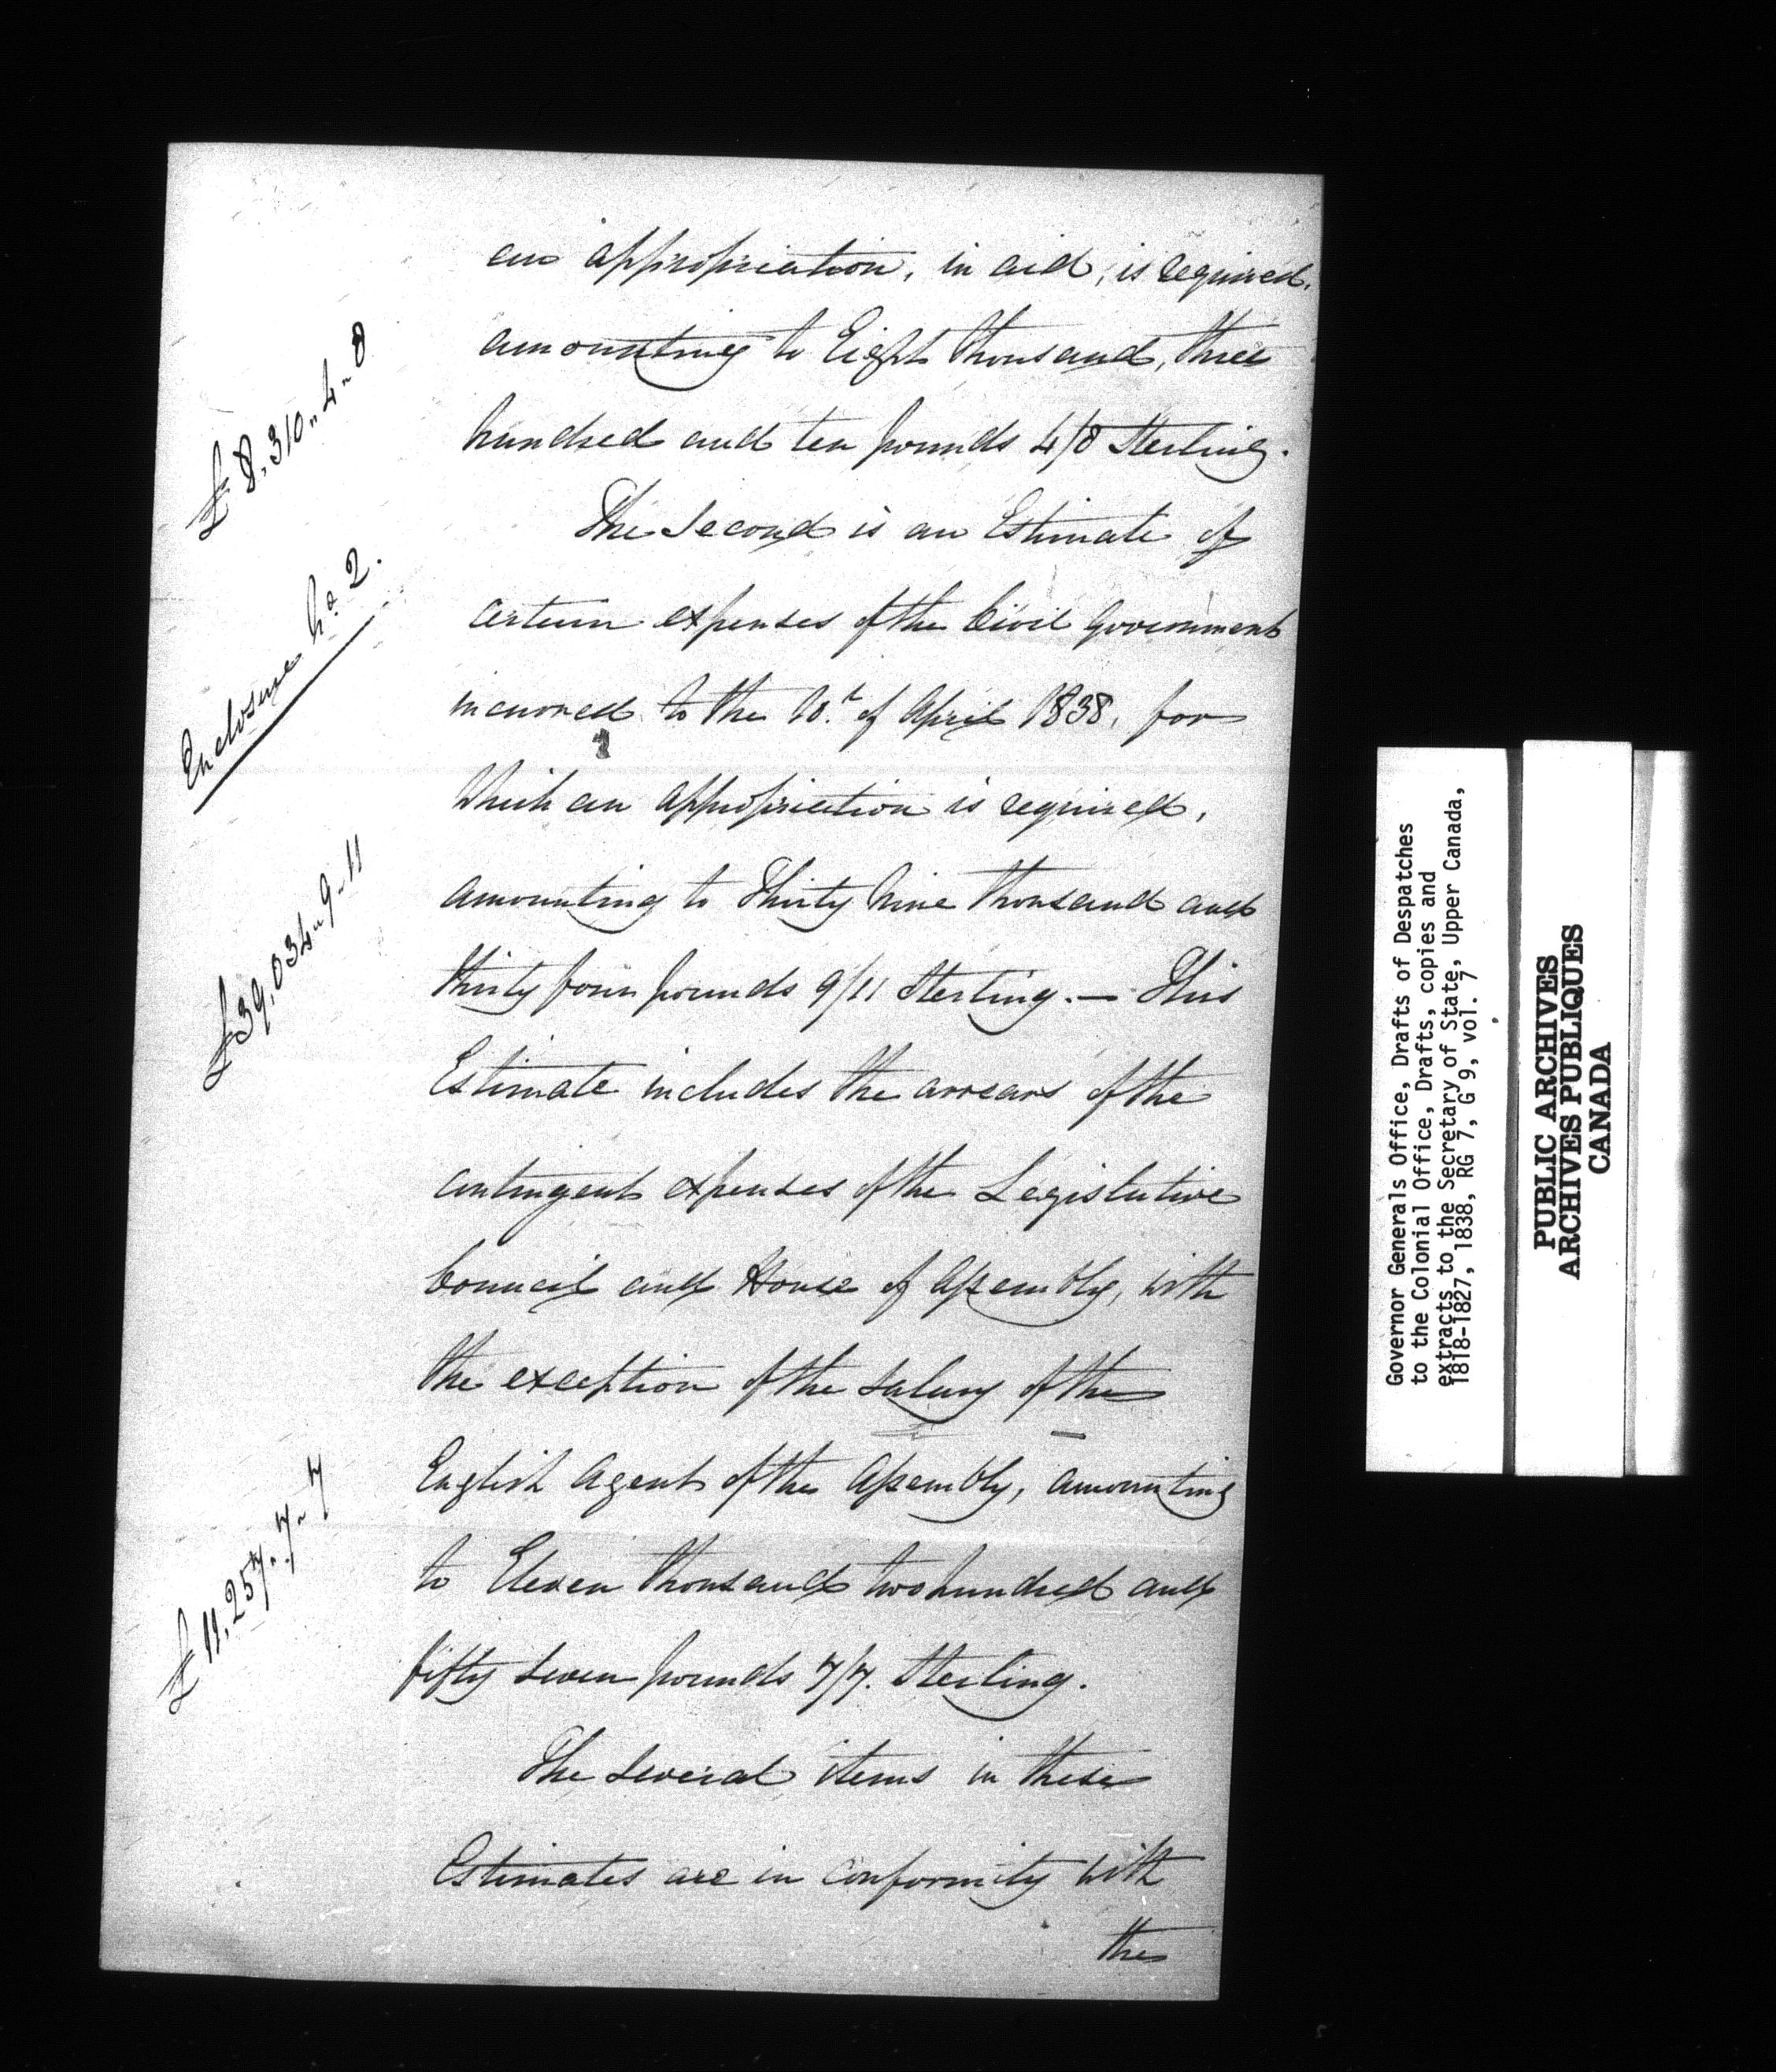 an appropriation, in aid, is required,
amounting to Eight thousand, three
hundred and ten pounds 4/8 Sterling.
£8,310 „ 4 „ 8
The Second is an Estimate of
certain expenses of the Civil Government
incurred to the 10.t of April 1838, for
which an appropriation is required,
Enclosure No. 2.
amounting to Thirty Nine thousand and
thirty four pounds 9/11 Sterling. — This
£39,034 „ 9 „ 11
Estimate includes the arrears of the
contingent expenses of the Legislative
Council and House of Assembly, with
the exception of the salary of the
English Agent of the Assembly, amounting
to Eleven thousand two hundred and
fifty seven pounds 7/7. Sterling.
£11,257 „ 7 „ 7
The several items in these
Estimates are in conformity with
the
Governor Generals Office, Drafts of Despatches
to the Colonial Office, Drafts, copies and
extracts to the Secretary of State, Upper Canada,
1818-1827, 1838, RG 7, G 9, vol. 7
PUBLIC ARCHIVES
ARCHIVES PUBLIQUES
CANADA